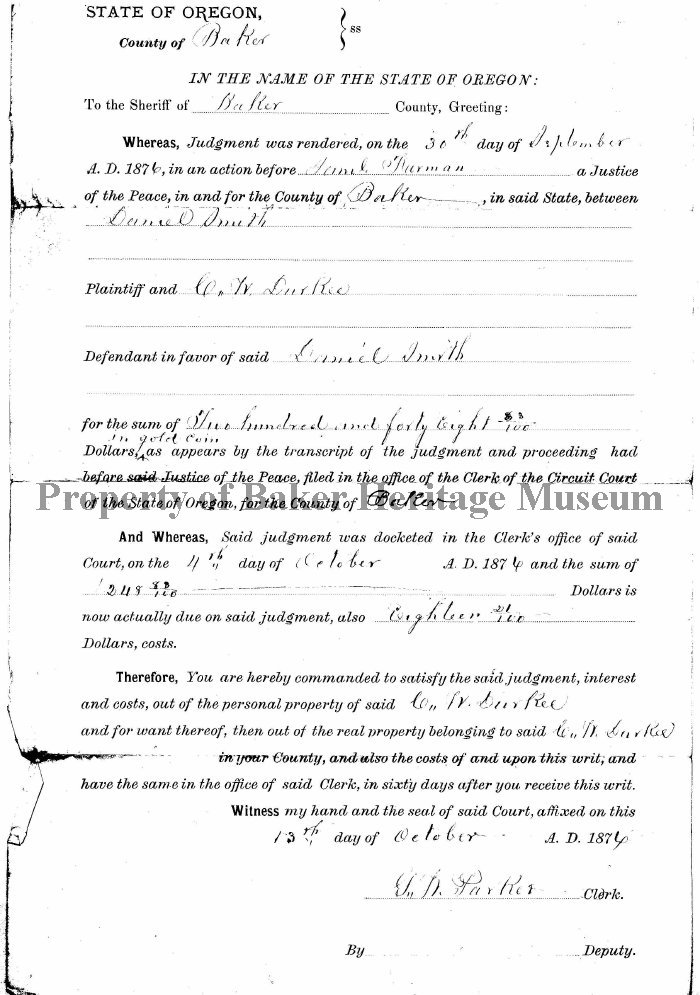 STATE OF OREGON,
County of Baker } ss
IN THE NAME OF THE STATE OF OREGON:
To the Sheriff of Baker County, Greeting:
Whereas, Judgment was rendered, on the 30th day of September
A. D. 1876, in an action before Saml Furman a Justice
of the Peace, in and for the County of Baker, in said State, between
Daniel Smith
Plaintiff and C. W. Durkee
Defendant in favor of said Daniel Smith
for the sum of Two hundred and forty Eight 83/100
in gold coin
Dollars, as appears by the transcript of the judgment and proceeding had
before said Justice of the Peace, filed in the office of the Clerk of the Circuit Court
Property of Baker Heritage Museum
of the State of Oregon, for the County of Baker
And Whereas, Said judgment was docketed in the Clerk's office of said
Court, on the 4th day of October A. D. 1876 and the sum of
248 83/100 Dollars is
now actually due on said judgment, also Eighteen 21/100
Dollars, costs.
Therefore, You are hereby commanded to satisfy the said judgment, interest
and costs, out of the personal property of said C. W. Durkee
and for want thereof, then out of the real property belonging to said C. W. Durkee
in your County, and also the costs of and upon this writ, and
have the same in the office of said Clerk, in sixty days after you receive this writ.
Witness my hand and the seal of said Court, affixed on this
13th day of October A. D. 1876
W. Parker Clerk.
By Deputy.